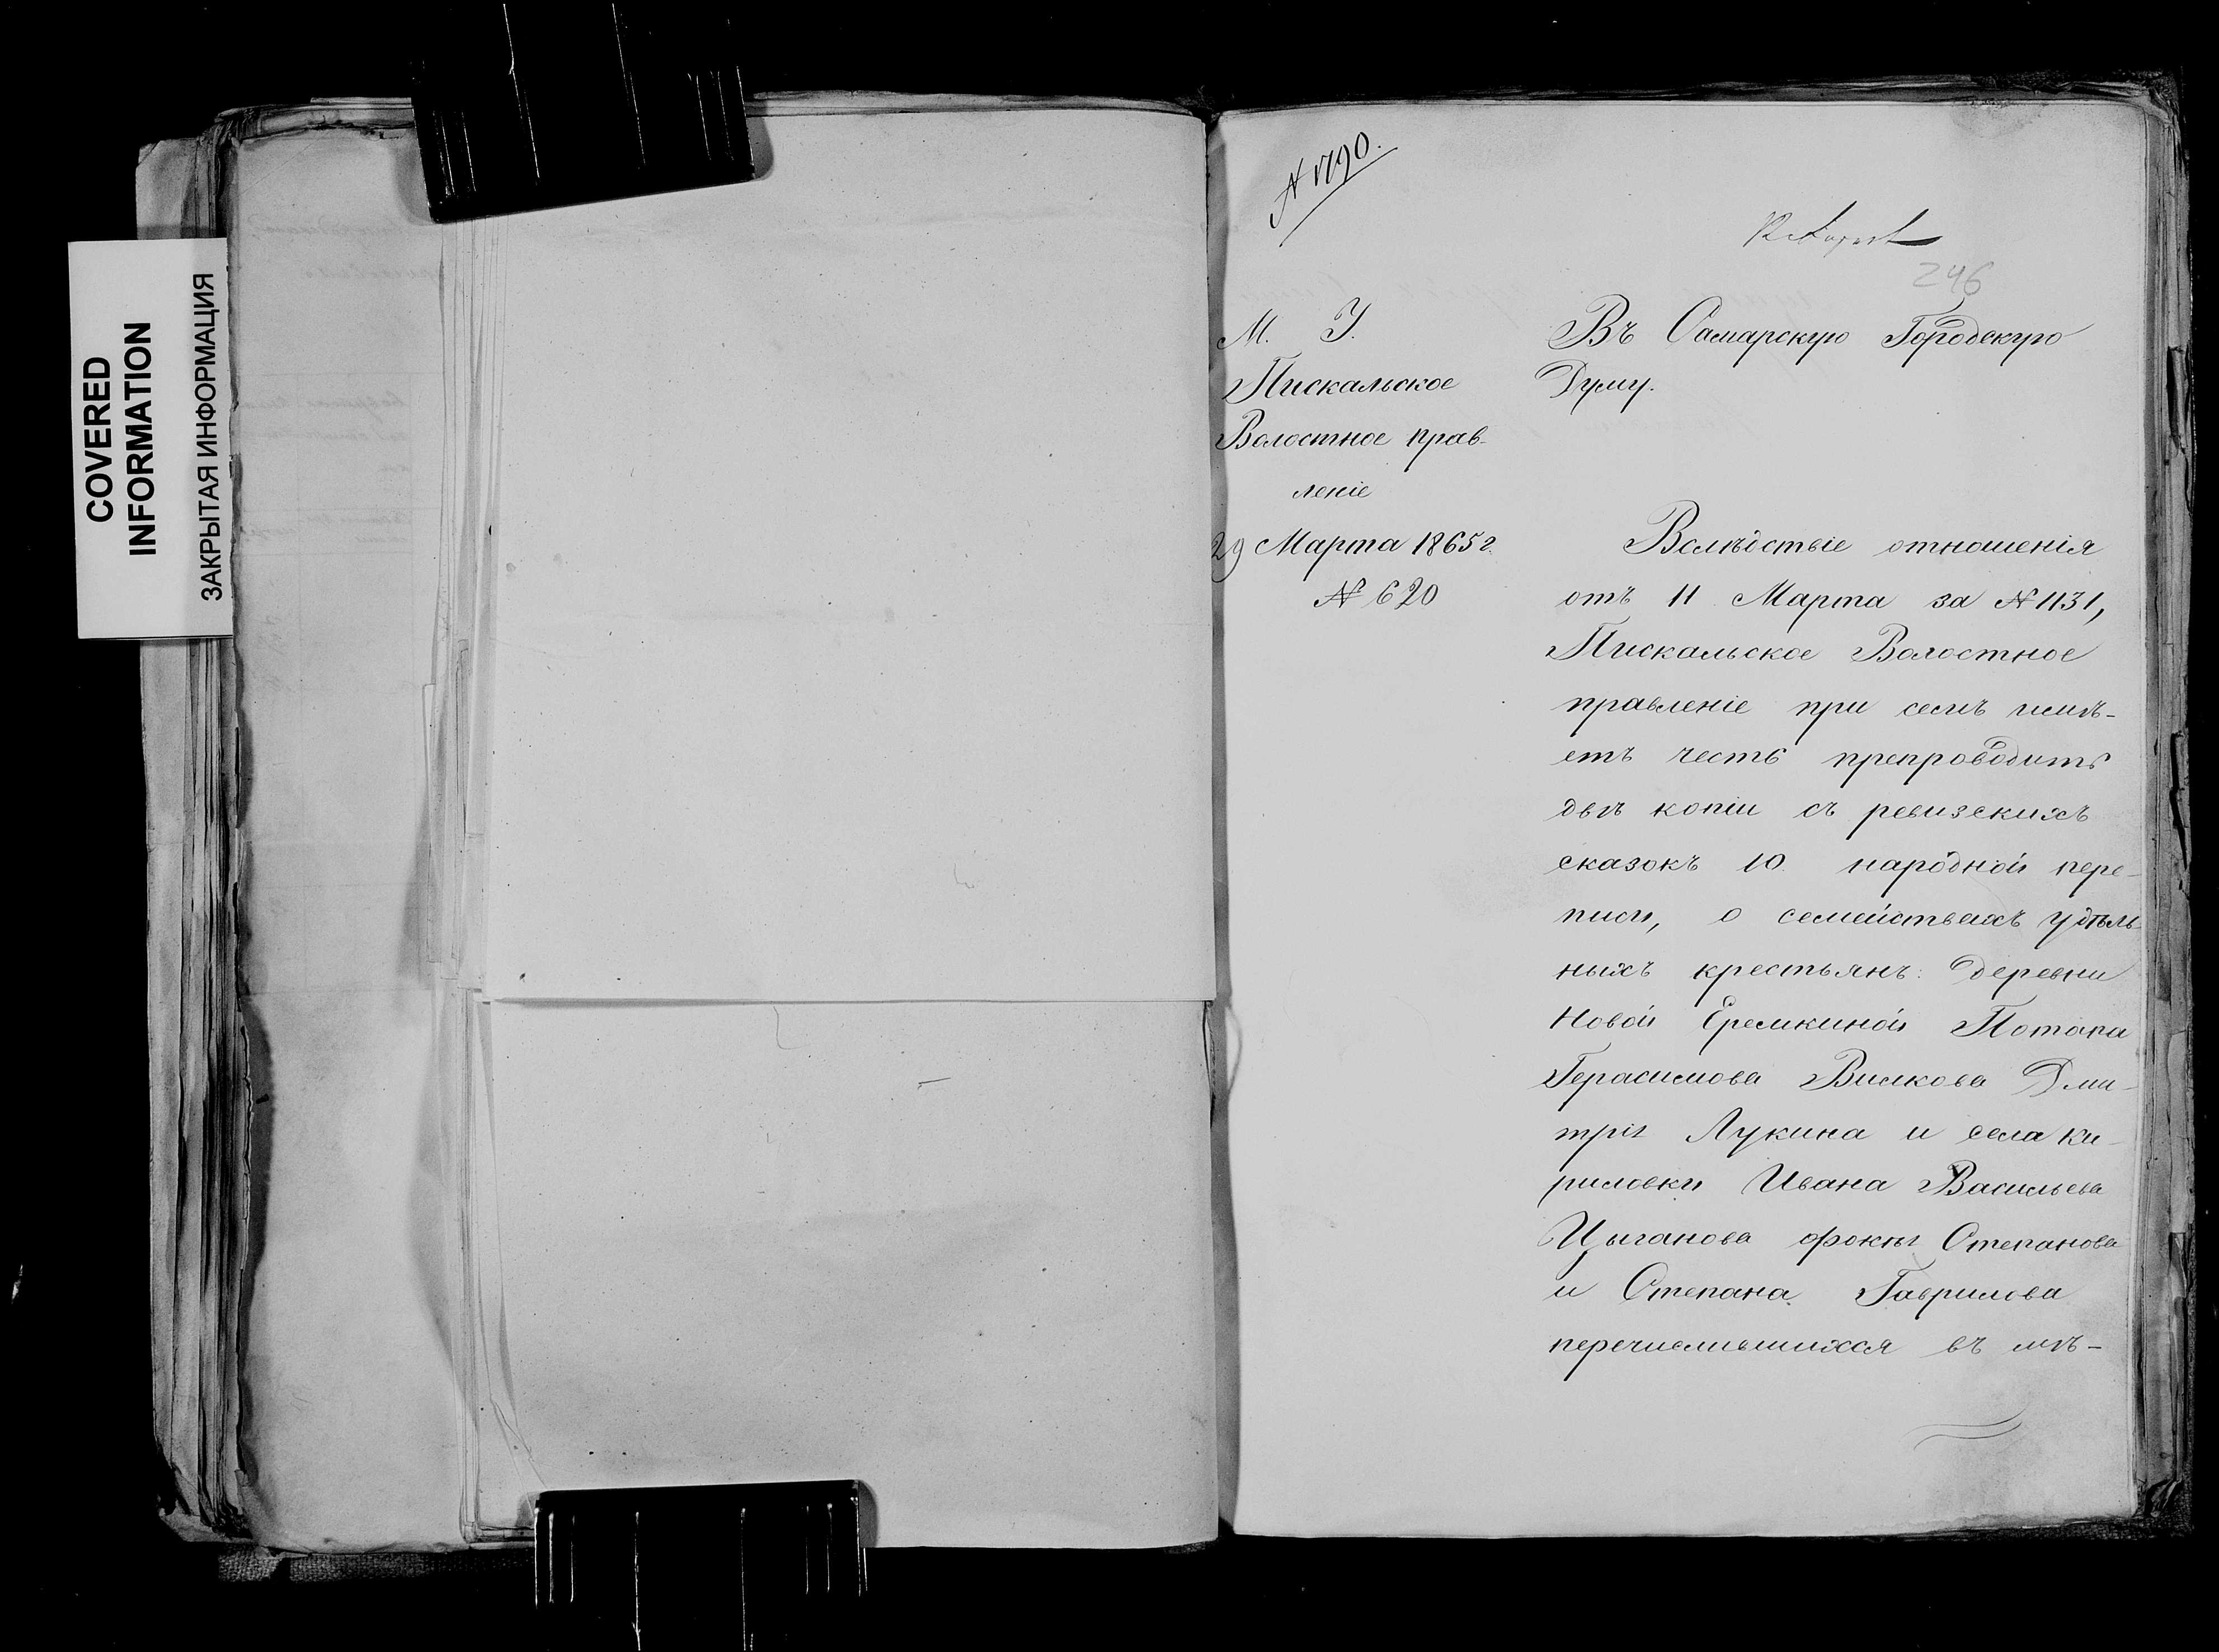 COVERED
INFORMATION
ЗАКРЫТАЯ ИНФОРМАЦИЯ
№ 1790.
246
М. У.
Пискальское
Волостное прав-
леніе
29 Марта 1865 г.
№ 620
Въ Самарскую Городскую
Думу.
Вслѣдствіе отношенія
отъ 11 Марта за № 1131,
Пискальское Волостное
правленіе при семъ имѣ-
етъ честь препроводить
двѣ копіи съ ревизскихъ
сказокъ 10 народной пере-
писи, о семействахъ удѣль-
ныхъ крестьянъ: деревни
Новой Еремкиной Потапа
Герасимова Вилкова Дми-
трія Лукина и села Ки-
риловки Ивана Васильева
Цыганова Фоки Степанова
и Степана Гаврилова
перечислившихся въ мѣ-